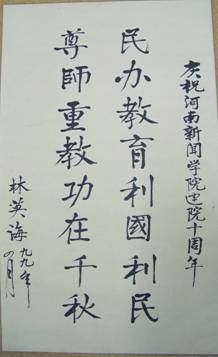 庆祝河南新闻学院建院十周年
民办教育利國利民
尊師重教功在千秋
林英海
九九年
四月